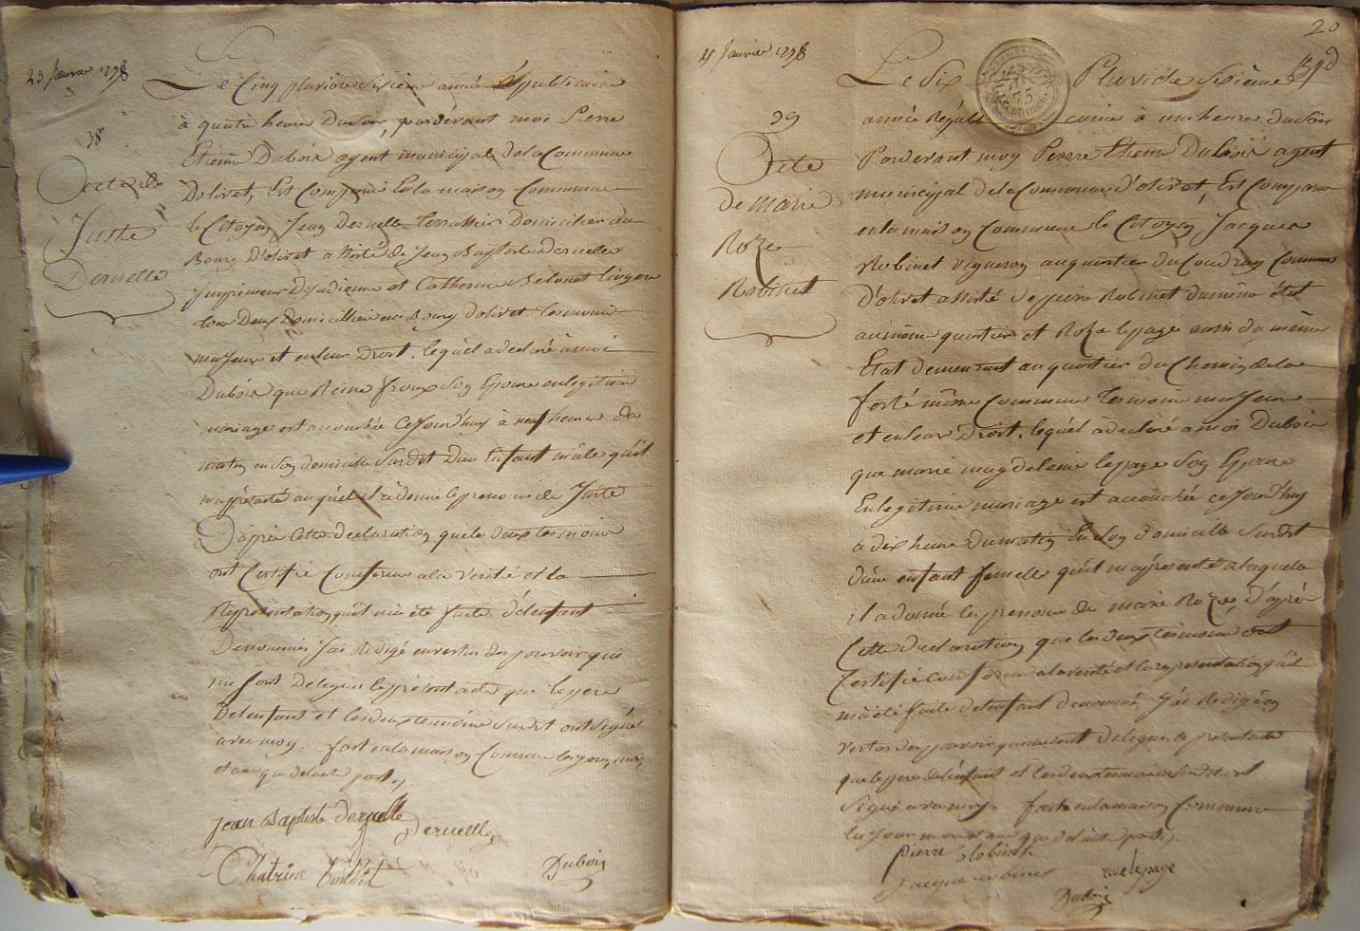 Le Cinq pluviose sixieme année Républicaine
à quatre heure du soir, pardevant moi Pierre
Etienne Dubois agent municipal de la Commune
Dolivet, Est Comparu En la maison Commune
le Citoyen Jean Deruelle Domicilier du
Bourg D'olivet assisté de Jean Baptiste Deruelle
Imprimeur D'indienne et Catherine
tous Deux Domicilliés au Bourg dolivet temoins
majeurs et en leur Droit. lequel a declaré à moi
Dubois que Reine son Epouse en legitime
mariage est accouchée Ce Jourd'huy à neuf heures du
matin en son domicille Susdit D'un Enfant mâle qu'il
m'a présenté auquel il a donné le prenom de Juste
D'après Cette declaration que les deux temoins
ont Certifié Conforme a la verité et la
Représentation qu'il m'a été faite de l'enfant
Denommé J'ai Rédigé en vertu des pouvoirs qui
me sont delegués le présent acte que le père
De l'enfant et les deux temoins susdit ont signé
avec moy. fait en la maison Commune les jour, mois
et an que de l'autre part.
Jean Baptiste Deruelle
Deruelle
Dubois
23 Janvier 1798
38
Juste
Deruelle
20
25 Janvier 1798
Le Six Pluviose Sixième
année Républicaine à une heure du soir
Pardevant moy Pierre Etienne Dubois agent
municipal de la Commune d'olivet, Est Comparu
en la maison Commune le Citoyen Jacques
Robinet vigneron au quartier du Coudray Commune
D'olivet assisté de pierre Robinet du même état
au même quartier et Roze lepage aussi du même
Etat demeurant au quartier du Chemin de la
ferté même Commune temoins majeurs
et en leur Droit. lequel a declaré a moi Dubois
que marie magdeleine lepage son Epouse
En legitime mariage est accouchée ce Jourd'huy
à dix heure du matin En son domicille Susdit
d'un enfant femelle qu'il m'a présenté a laquelle
il a donné les prenoms de marie Roze, d'après
Cette declaration que les deux temoins ont
Certifié conforme a la verité et la representation qu'il
m'a été faite de l'enfant denommé, J'ai Redigé en
vertu des pouvoirs qui me sont delegués le présent acte
que le père de l'enfant et les deux temoins susdit ont
Signé avec moy. fait en la maison Commune
les Jour mois et an que de l'autre part.
pierre Robinet
Jacque robinet
roze lepage
Dubois
29
de marie
Roze
Robinet